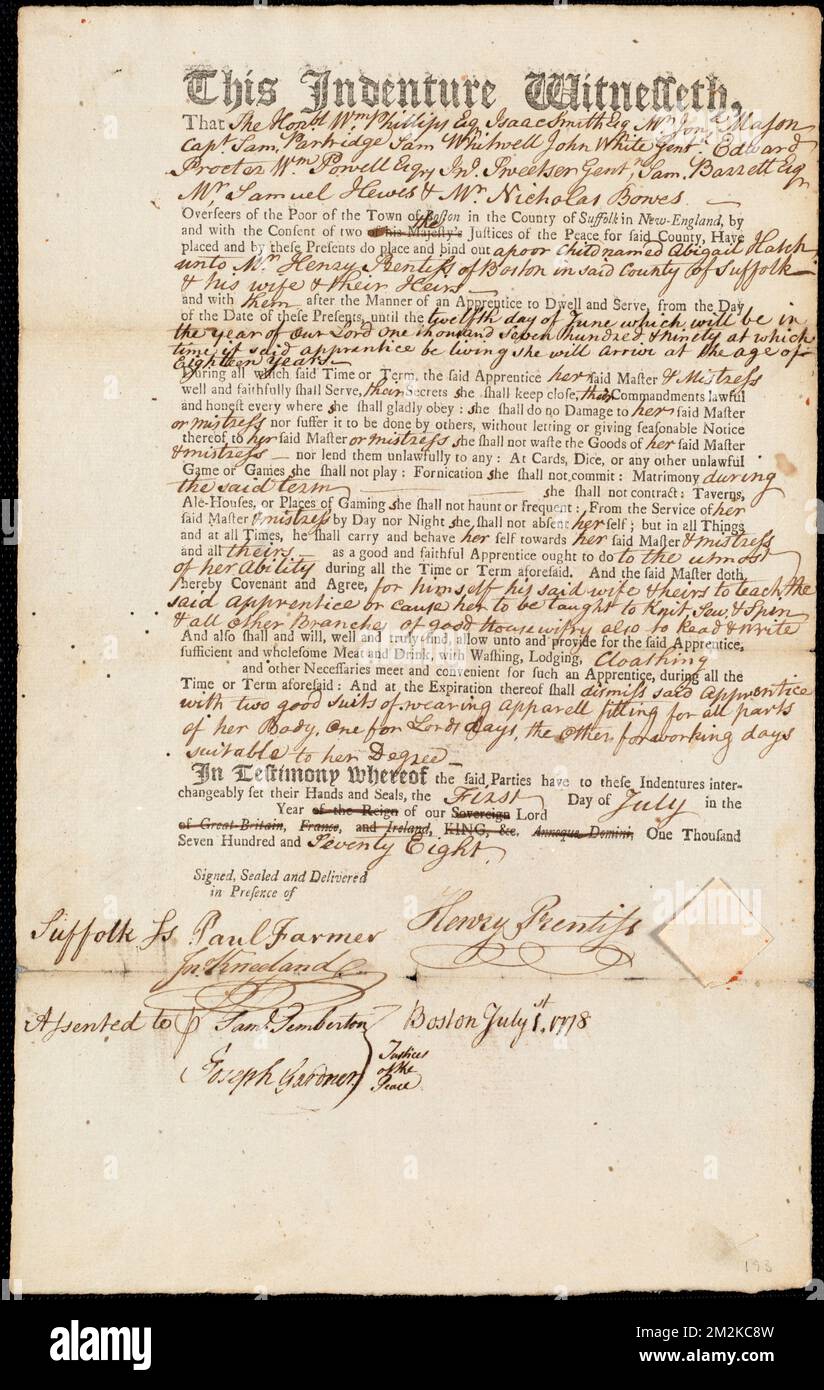 This Indenture Witnesseth,
That The Honbl Wm Phillips Esq Isaac Smith Esq Mr Jona Mason
Capt Sam. Partridge Sam Whitwell John White Gent. Edward
Procter Wm Powell Esqrs Jno. Sweetser Gentn Sam. Barrett Esqr
Mr Samuel Hewes & Mr Nicholas Bowes
Overseers of the Poor of the Town of Boston in the County of Suffolk in New-England, by
and with the Consent of two of his Majesty's the Justices of the Peace for said County, Have
placed and by these Presents do place and bind out a poor Child named Abigail Hatch
unto Mr Henry Prentiss of Boston in said County of Suffolk
& his wife & their Heirs
and with them after the Manner of an Apprentice to Dwell and Serve, from the Day
of the Date of these Presents, until the twelfth day of June which will be in
the year of our Lord One thousand Seven hundred & ninety at which
time, if said apprentice be living she will arrive at the age of
Eighteen Years
During all which said Time or Term, the said Apprentice her said Master & Mistress
well and faithfully shall Serve, their Secrets she shall keep close, their Commandments lawful
and honest every where she shall gladly obey: she shall do no Damage to her said Master
or mistress nor suffer it to be done by others, without letting or giving seasonable Notice
thereof to her said Master or mistress she shall not waste the Goods of her said Master
& mistress nor lend them unlawfully to any: At Cards, Dice, or any other unlawful
Game or Games she shall not play: Fornication she shall not commit: Matrimony during
the said term she shall not contract: Taverns,
Ale-Houses, or Places of Gaming she shall not haunt or frequent: From the Service of her
said Master & mistress by Day nor Night she shall not absent her self; but in all Things
and at all Times, she shall carry and behave her self towards her said Master & mistress
and all theirs as a good and faithful Apprentice ought to do to the utmost
of her Ability during all the Time or Term aforesaid. And the said Master doth
hereby Covenant and Agree, for himself his said wife & heirs to teach the
said apprentice or cause her to be taught to Knit, Sew, & Spin
& all other Branches of good housewifry also to Read & write
And also shall and will, well and truly find, allow unto and provide for the said Apprentice,
sufficient and wholesome Meat and Drink, with Washing, Lodging, Cloathing
and other Necessaries meet and convenient for such an Apprentice, during all the
Time or Term aforesaid: And at the Expiration thereof shall dismiss said Apprentice
with two good suits of wearing apparell fitting for all parts
of her Body, One for Lords days, the other for working days
suitable to her Degree
In Testimony whereof the said Parties have to these Indentures inter-
changeably set their Hands and Seals, the First Day of July in the
Year of the Reign of our Sovereign Lord
of Great-Britain, France, and Ireland, KING, &c. Annoque Domini, One Thousand
Seven Hundred and Seventy Eight.
Signed, Sealed and Delivered
in Presence of
Suffolk Ss Paul Farmer Henry Prentiss
Jn. Kneeland
Assented to Saml. Pemberton Boston July 1st. 1778
Joseph Gardner Justices
of the
Peace
193
alamy
Image ID: 2M2KC8W
www.alamy.com